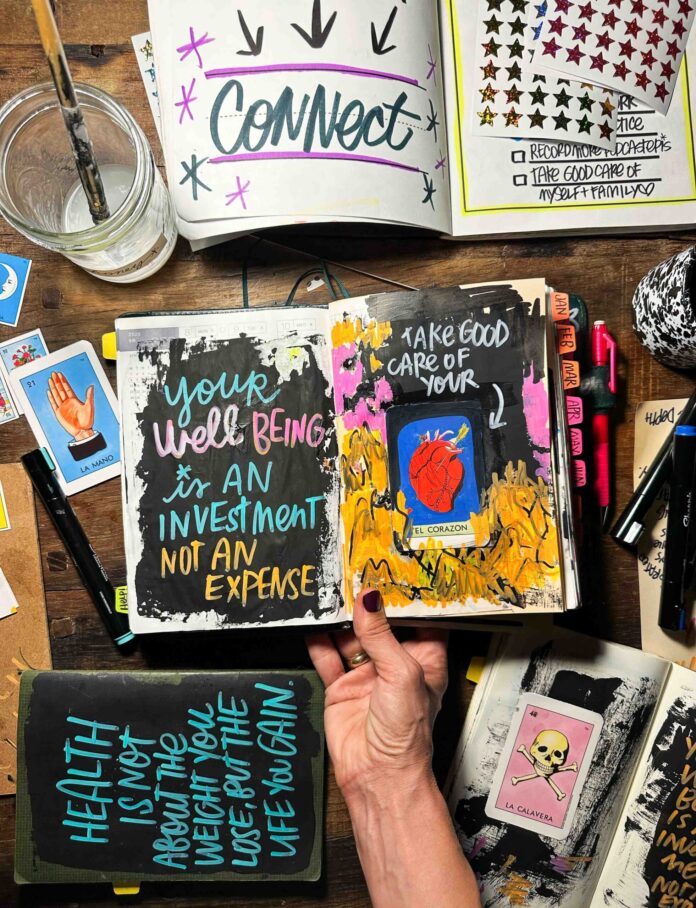 CONNECT
RECORD MORE PODCAST EPIS
TAKE GOOD CARE OF
MYSELF + FAMILY
21
LA MANO
YOUR
WELL BEING
IS AN
INVESTMENT
NOT AN
EXPENSE
TAKE GOOD
CARE OF
YOUR
EL CORAZON
JAN
FEB
MAR
APR
MAY
JUN
HEALTH
IS NOT
ABOUT THE
WEIGHT YOU
LOSE, BUT THE
LIFE YOU GAIN.
LA CALAVERA